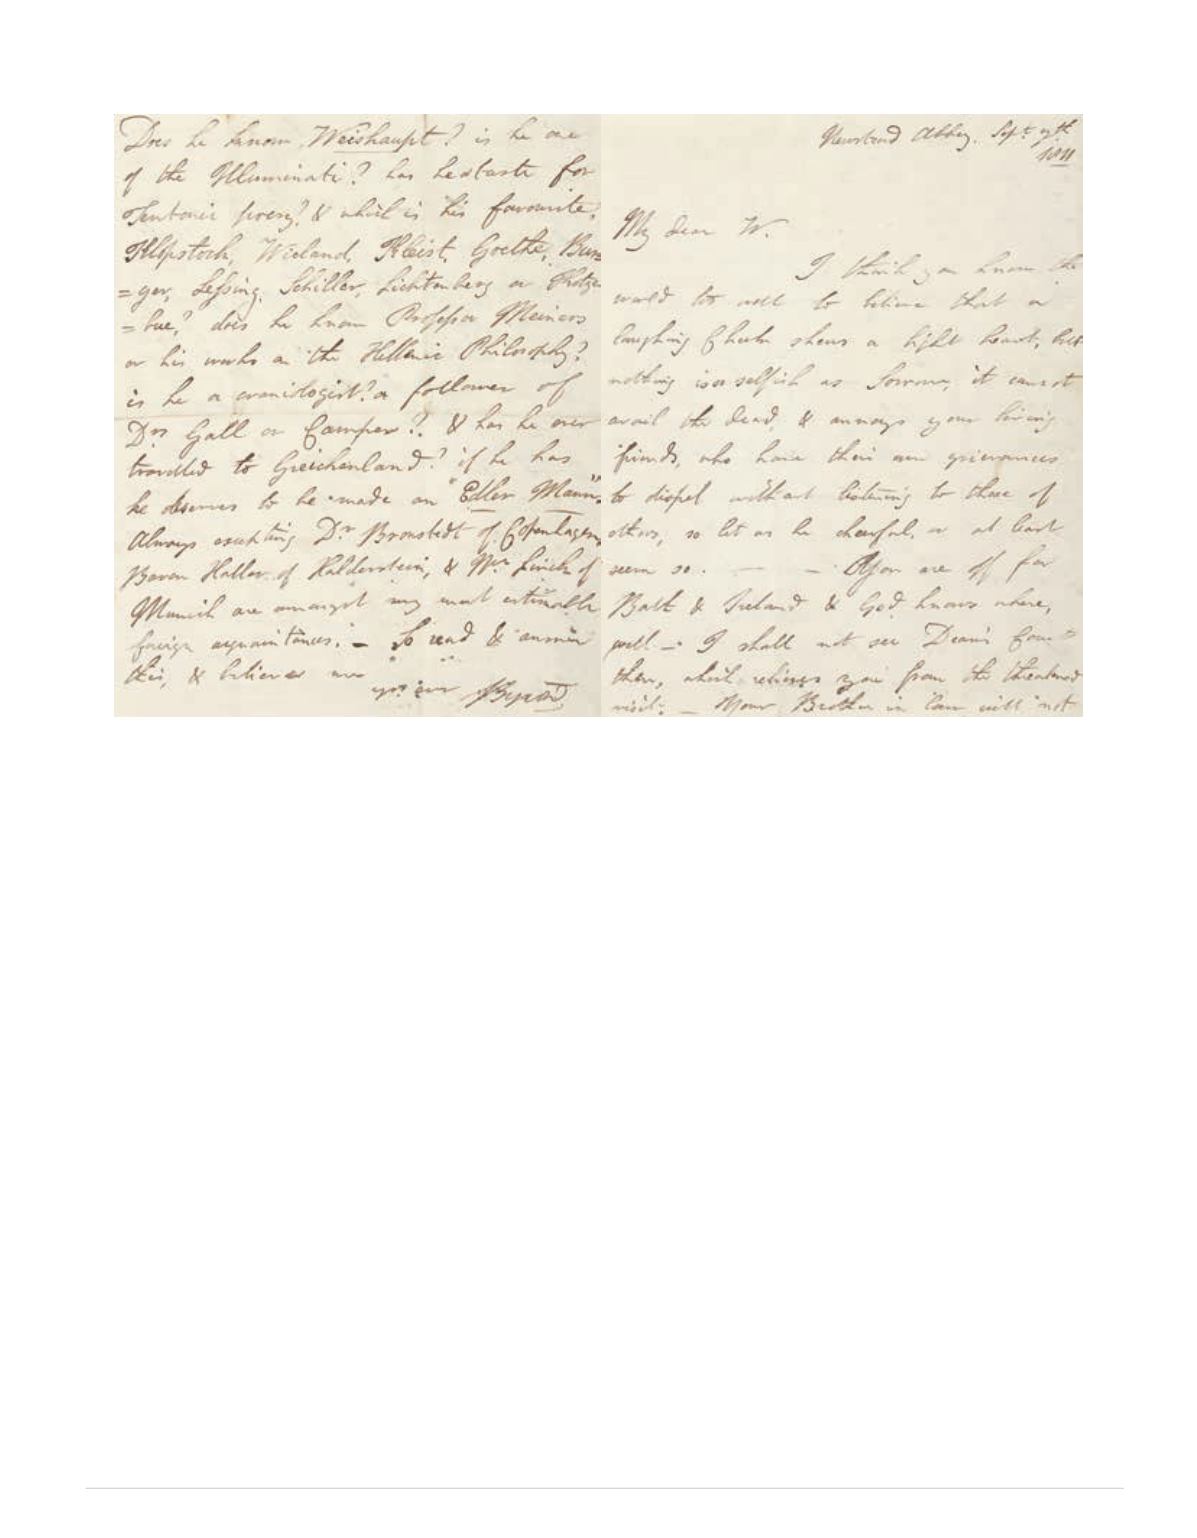 Does he know Weishaupt? is he one
of the Illuminati? has he a taste for
Teutonic poesy? & which is his favourite,
Klopstock, Wieland, Kleist, Goethe, Bur
=ger, Lessing, Schiller, Lichtenberg or Kotze
=bue? does he know Professor Meiners
or his works on the Hellenic Philosophy?
is he a craniologist? a follower of
Drs Gall or Camper? & has he ever
travelled to Greichenland? if he has
he deserves to be made an "Edler Mann".
Always excepting Dr Bronstedt of Copenhagen,
Baron Haller of Halderstein, & Mr Linck of
Munich are amongst my most estimable
foreign acquaintances. – So read & answer
this, & believe me
yrs ever Byron
Newstead Abbey. Sept. 1811
My dear W.
I think you know the
world too well to believe that a
laughing Cheek shews a light heart, but
nothing is so selfish as Sorrow, it cannot
avail the dead, & annoys your living
friends, who have their own grievances
to dispel without listening to those of
others, so let us be chearful, or at least
seem so. — — You are off for
Bath & Ireland & God knows where,
well – I shall not see Dean's Court
then, which relieves you from the threatened
visit. – Your Brother in law will not